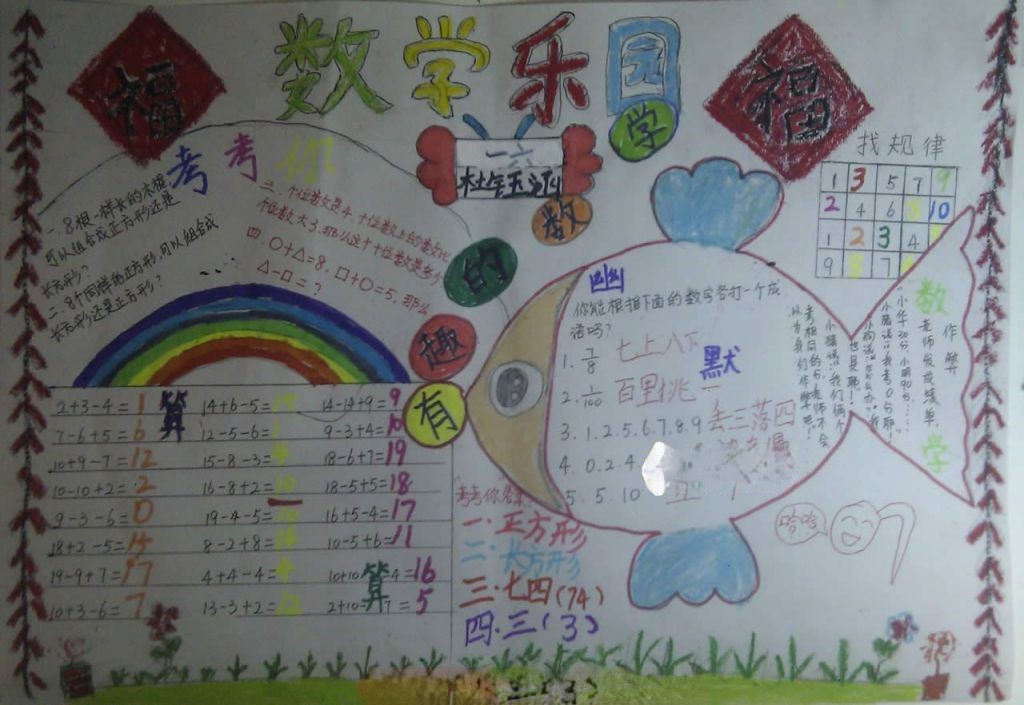 数学乐园
福
福
一六
有趣的数学
考考你
一.8根一样长的木棍
可以组合成正方形还是
长方形?
二.9个同样的正方形,可以组合成
长方形还是正方形?
三.个位数是4,十位数上的数比
个位数大3.那么这个十位数是多少
四.○+△=8,□+○=5.那么
△-□=?
算
2+3-4=1
7-6+5=6
10+9-7=12
10-10+2=2
9-3-6=0
18+2-5=15
19-9+7=17
10+3-6=7
14+6-5=
12-5-6=
15-8-3=4
16-8+2=10
19-4-5=10
8-2+8=14
4+4-4=4
13-3+2=12
14-14+9=9
9-3+4=10
18-6+7=19
18-5+5=18
16+5-4=17
10-5+6=11
=16
=5
算
幽默
你能根据下面的数字各打一个成
语吗?
1. 7/8 七上八下
2. 1/100 百里挑一
3. 1.2.5.6.7.8.9 丢三落四
4. 0.2.4
5. 5.10
考考你答案
一.正方形
二.长方形
三.七四(74)
四.三(3)
找规律
1 3 5 7 9
2 4 6 8 10
1 2 3 4
9 8 7
数学
作弊
老师发成绩单.
"小华20分,小明90分……
小猪说:"我考0分耶!"
小狗说:"怎么办?我
也是耶!"
小猪说:"我们俩个
考相同的分,老师不会
以为我们作弊吧!
哈哈